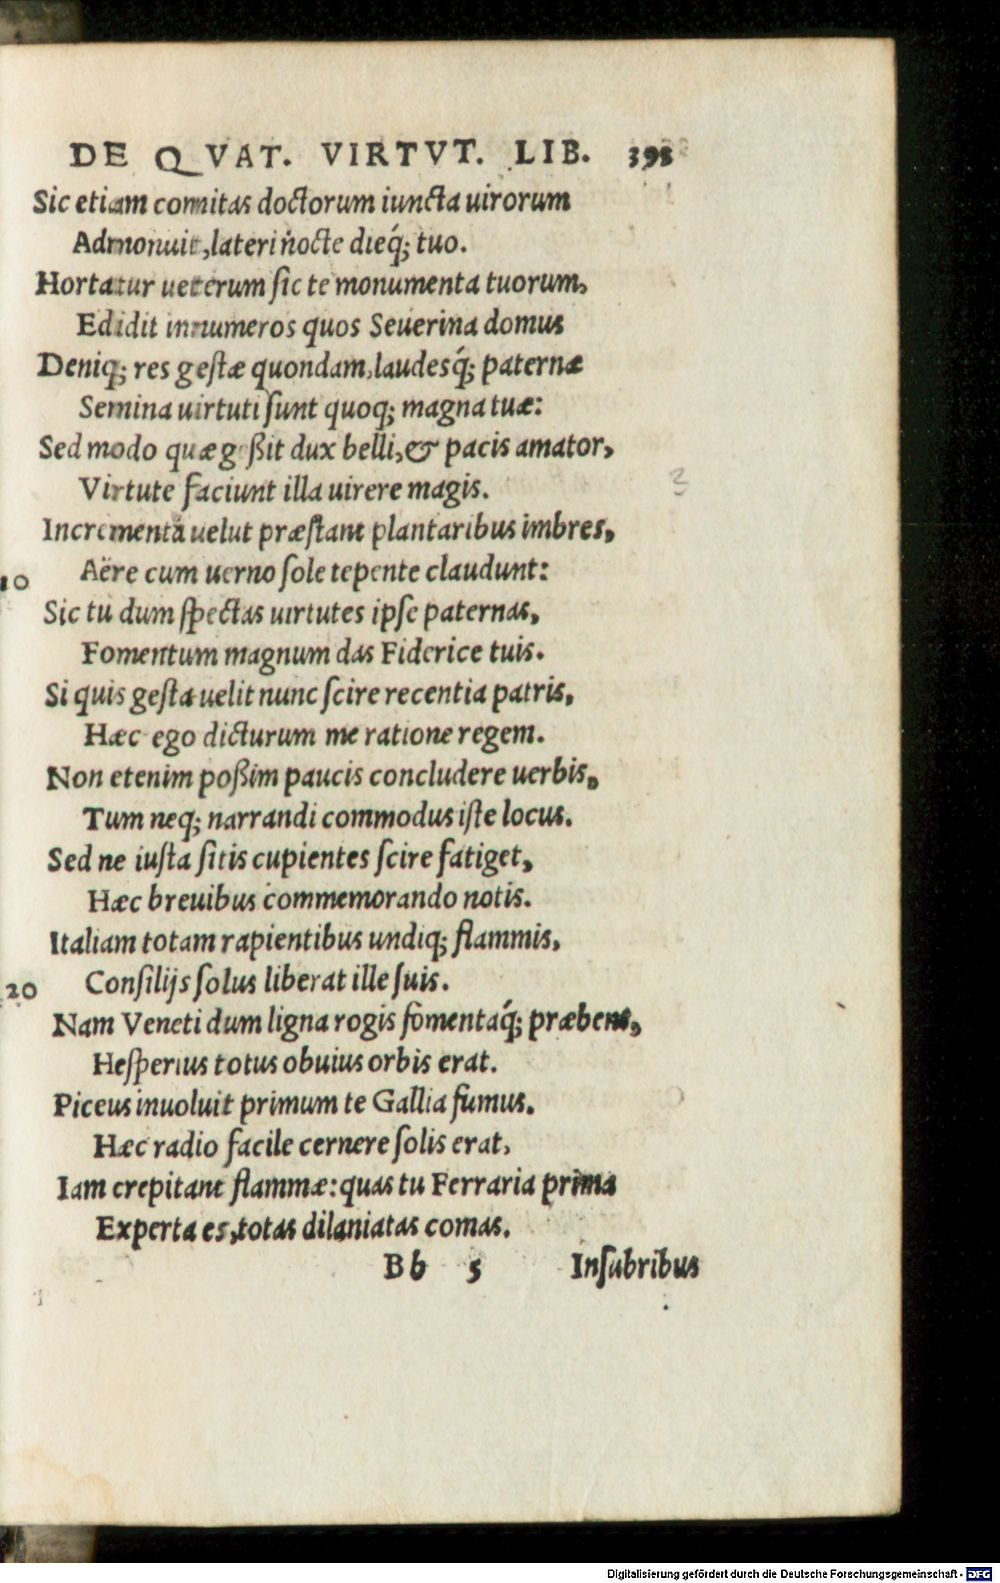 DE QVAT. VIRTVT. LIB. 393
Sic etiam comitas doctorum iuncta uirorum
Admonuit, lateri nocte dieq́; tuo.
Hortatur ueterum ſic te monumenta tuorum,
Edidit innumeros quos Seuerina domus
Deniq; res geſtæ quondam, laudesq́; paternæ
Semina uirtuti ſunt quoq; magna tuæ:
Sed modo quæ geßit dux belli, & pacis amator,
Virtute faciunt illa uirere magis.
Incrementa uelut præſtant plantaribus imbres,
10 Aëre cum uerno ſole tepente claudunt:
Sic tu dum ſpectas uirtutes ipſe paternas,
Fomentum magnum das Fiderice tuis.
Si quis geſta uelit nunc ſcire recentia patris,
Hæc ego dicturum me ratione regem.
Non etenim poßim paucis concludere uerbis,
Tum neq; narrandi commodus iſte locus.
Sed ne iuſta ſitis cupientes ſcire fatiget,
Hæc breuibus commemorando notis.
Italiam totam rapientibus undiq; flammis,
20 Conſilijs ſolus liberat ille ſuis.
Nam Veneti dum ligna rogis fomentaq́; præbent,
Heſperius totus obuius orbis erat.
Piceus inuoluit primum te Gallia fumus.
Hæc radio facile cernere ſolis erat,
Iam crepitant flammæ: quas tu Ferraria prima
Experta es, totas dilaniatas comas.
Bb 5 Inſubribus
3
Digitalisierung gefördert durch die Deutsche Forschungsgemeinschaft - DFG